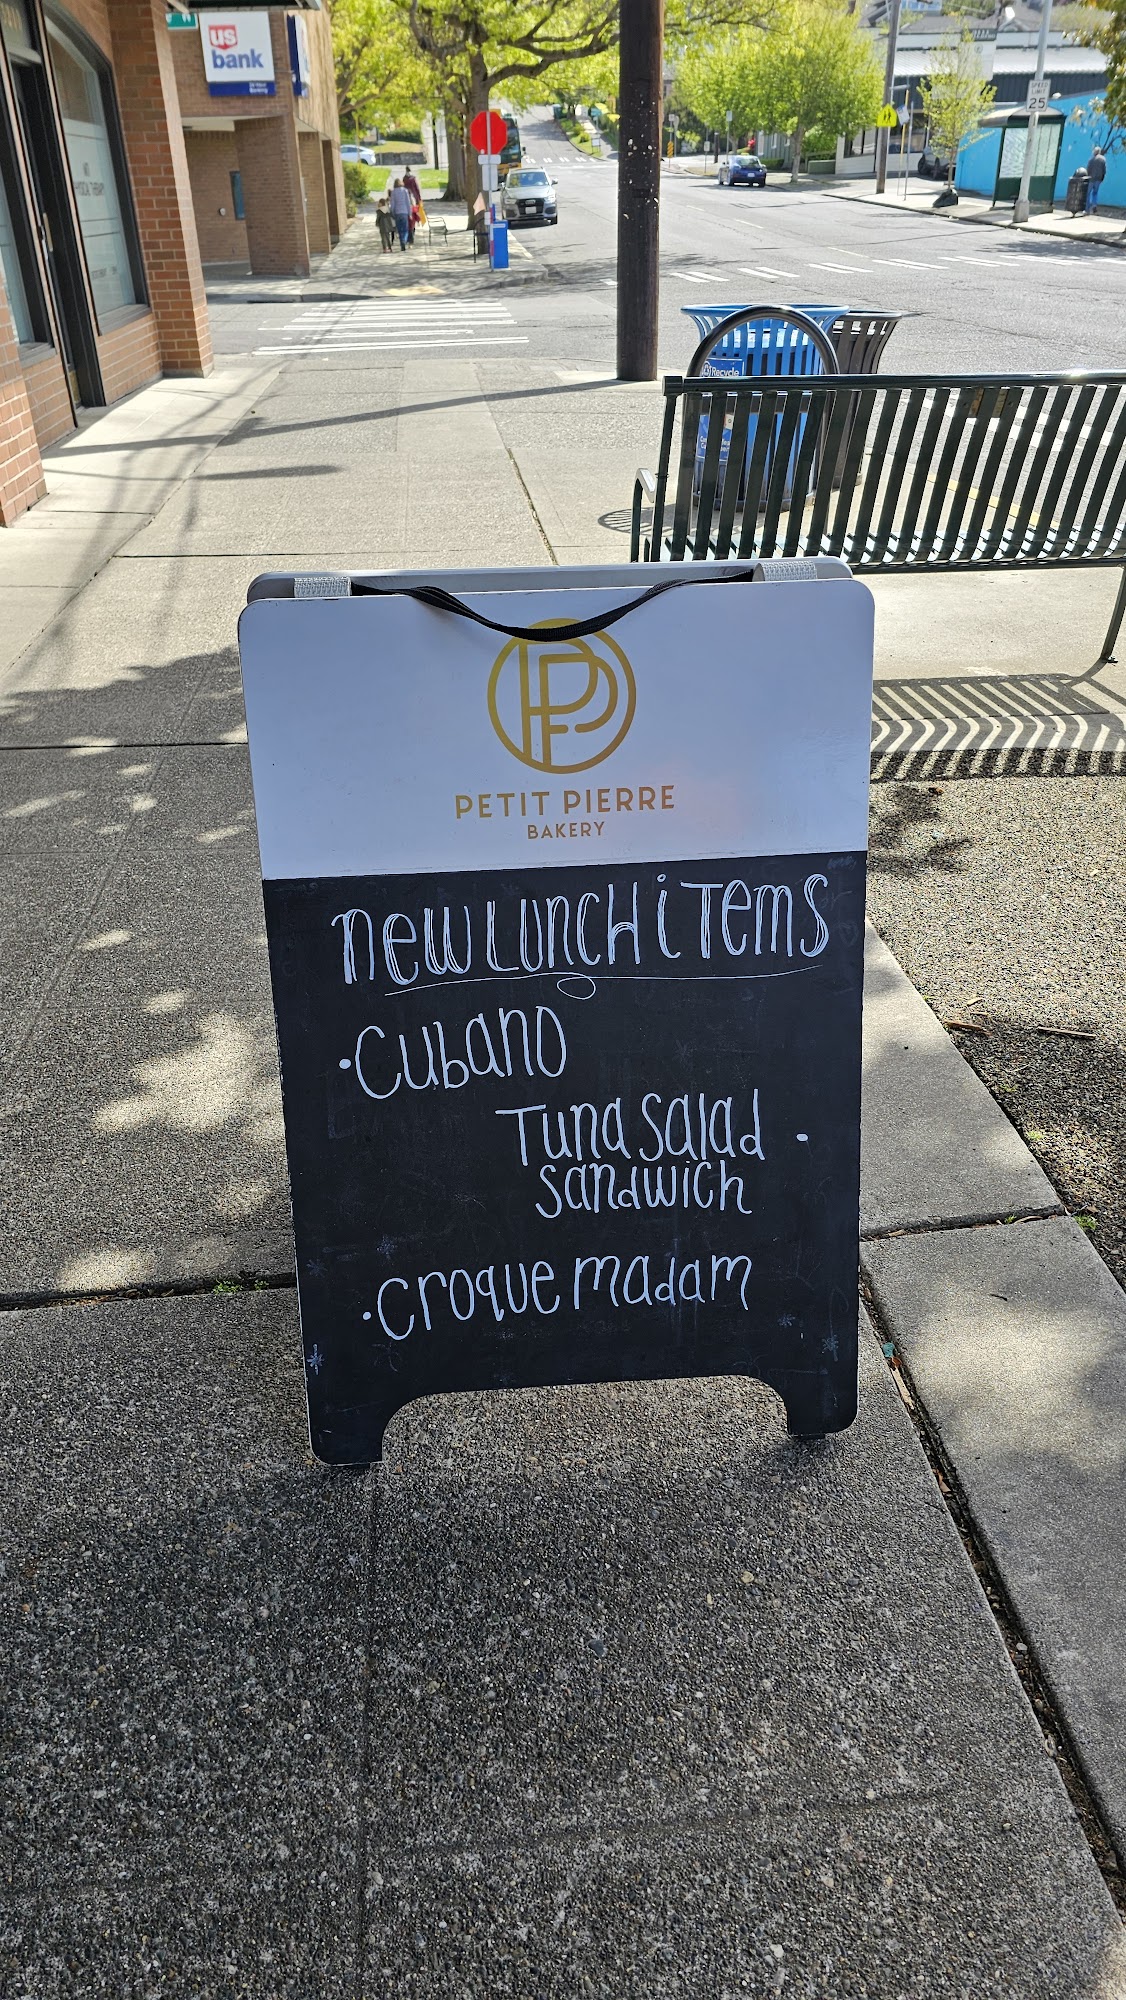 us
bank
SPEED
LIMIT
25
PHYSICAL THERAPY
Recycle
PETIT PIERRE
BAKERY
new Lunch iTems
• Cubano
Tuna Salad •
Sandwich
• Croque madam